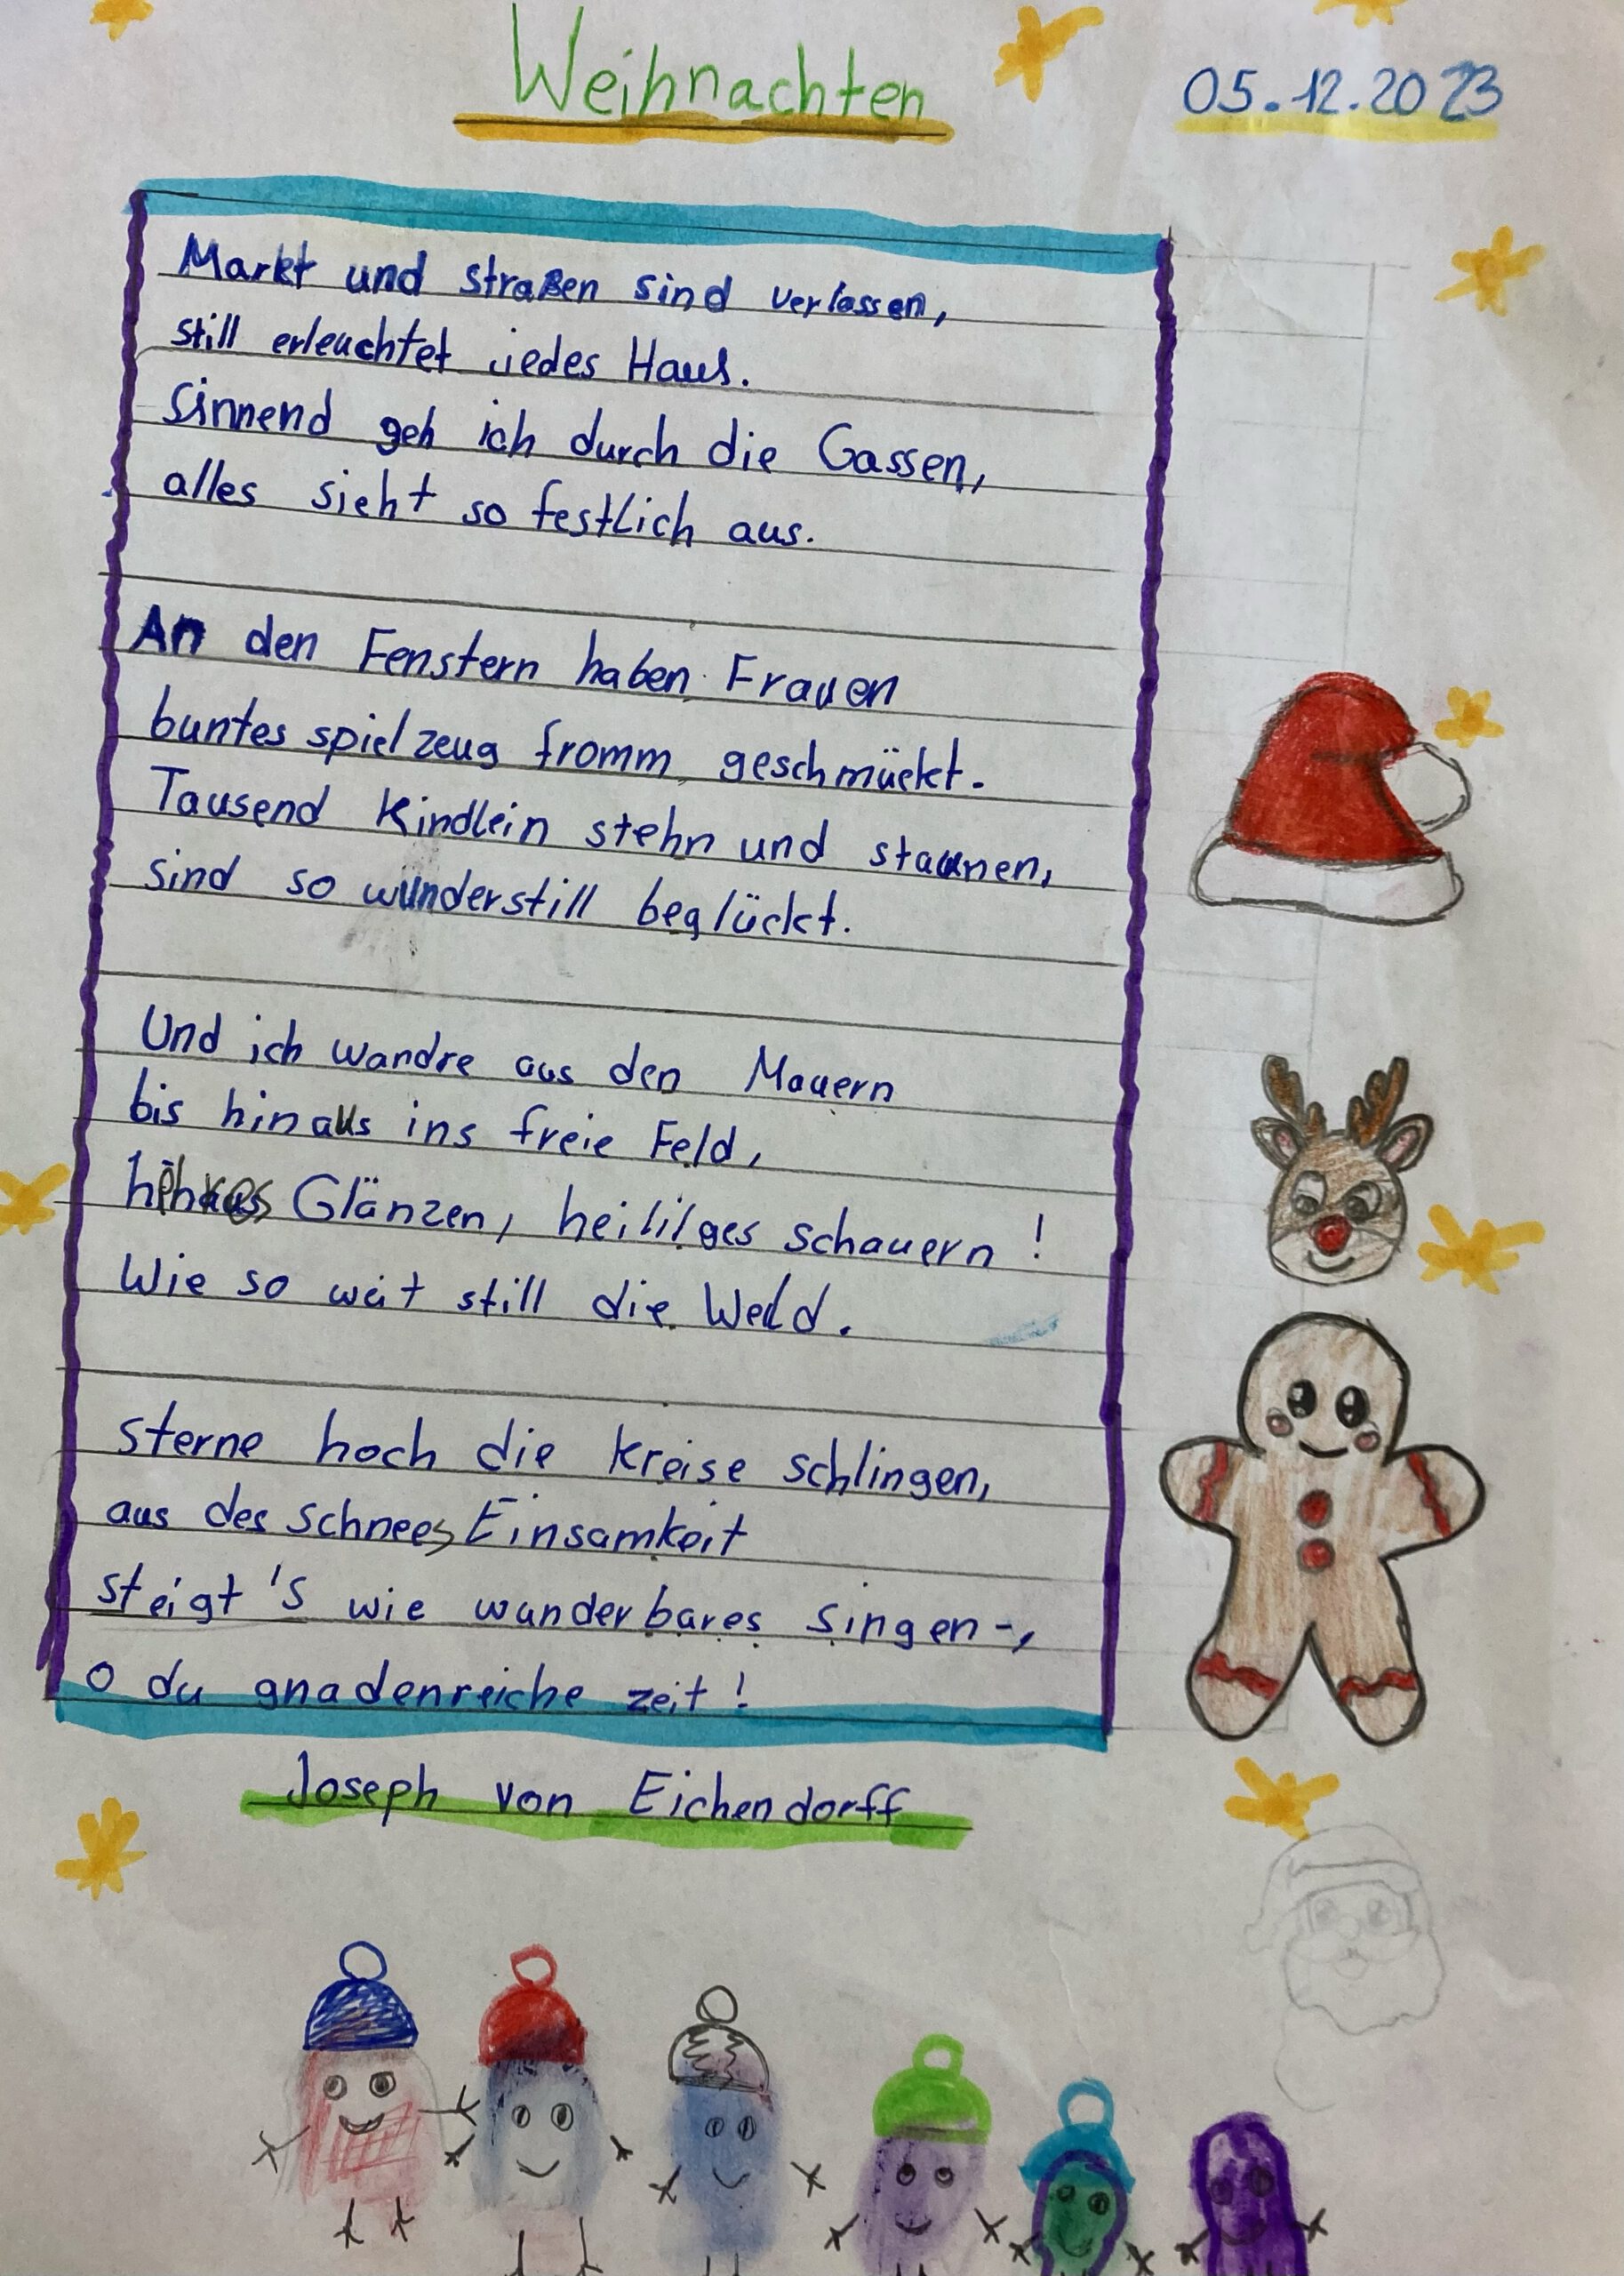 Weihnachten
05.12.2023
Markt und straßen sind verlassen,
still erleuchtet jedes Haus.
Sinnend geh ich durch die Gassen,
alles sieht so festlich aus.
An den Fenstern haben Frauen
buntes spielzeug fromm geschmückt.
Tausend Kindlein stehn und staunen,
sind so wunderstill beglückt.
Und ich wandre aus den Mauern
bis hinaus ins freie Feld,
Glänzen, heililges schauern !
Wie so weit still die Weld.
sterne hoch die kreise schlingen,
aus des schnees Einsamkeit
steigt 's wie wunderbares singen-,
o du gnadenreiche zeit!
Joseph von Eichendorff